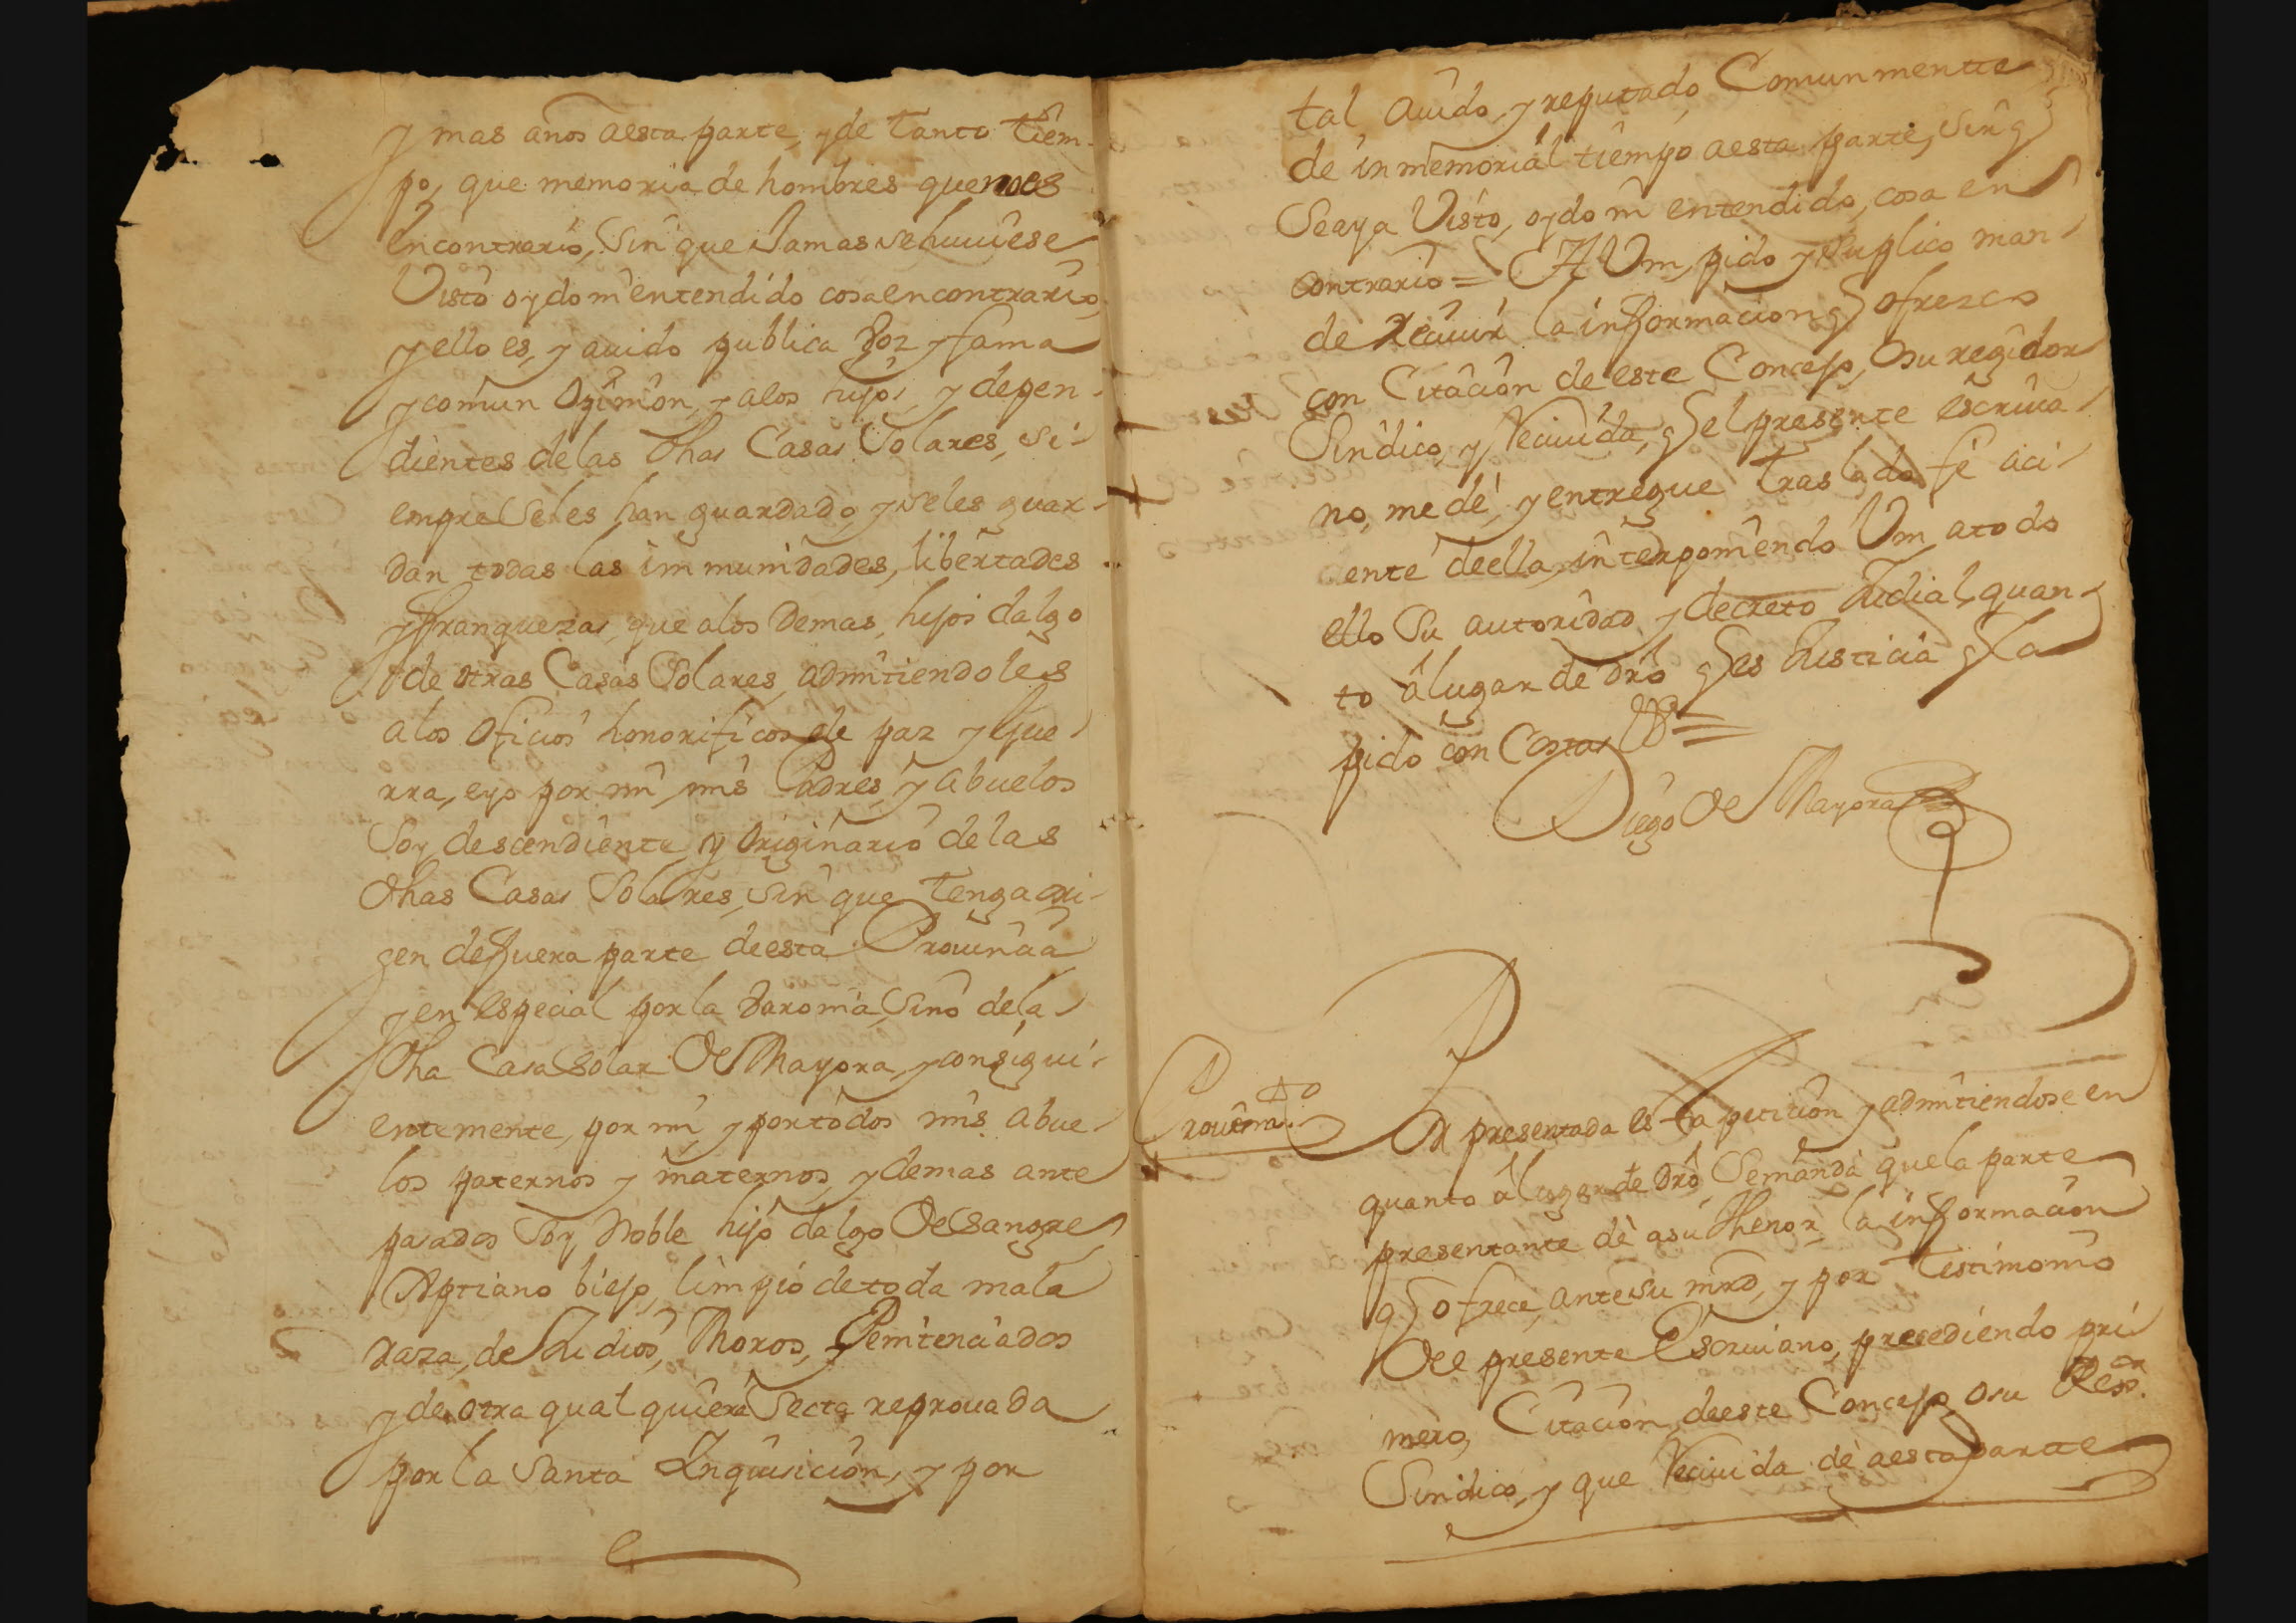 y mas años aesta parte, y de tanto tiem-
po, que memoria de hombres que no es
en contrario, Sin que Jamas se huuiese
Visto oydo ni entendido cosa en contrario,
y ello es, y auido publica Boz y fama
y comun Opinion, y alos hijos, y depen-
dientes de las dhas Casas Solares, Si-
empre Seles han guardado, y seles guar-
dan todas las immunidades, libertades
y franquezas, que alos Demas hijos dalgo
de otras Casas Solares, admitiendoles
a los Oficios honorificos de paz y gue-
rra, e yo por mi, mis Padres, y abuelos
Soy descendiente y Originario de las
dhas Casas Solares, Sin que tenga ori-
gen de fuera parte de esta Prouincia
y en especial por la Baronia, Sino de la
dha Casa Solar De Mayora, y consigui-
entemente, por mi, y por todos mis abue-
los paternos y maternos, y demas ante
pasados Soy Noble hijo dalgo De Sangre
Xptiano biejo, limpio de toda mala
Raza, de Judios, Moros, Penitenciados
y de otra qual quiera Secta reprouada
por la Santa Inquisicion, y por
tal auido, y reputado, Comunmentte
de inmemorial tiempo aesta parte, Sin q
Seaya Visto, oydo ni entendido, cosa en
contrario = A Vm, pido y Suplico man-
de Reciuir la informacion q ofrezco
con Citacion de este Concejo, O su regidor
Sindico, y Reciuida, q el presente escriua-
no, me dé, y entregue traslado fé aci-
ente de ella, interponiendo Vm, a todo
ello Su autoridad y decreto Judial, quan-
to â lugar de Drô q es Justicia q la
pido con Costas Vª =
Diego De Mayora
Prouemto
Por presentada esta peticion y admitiendose en
quanto â lugar de Drô, Se manda que la parte
presentante dè asu thenor, la informacion
q ofrece, ante su mrd, y por testimonio
Del presente Escriuano, precediendo pri-
mero, Citacion, de este Concejo, o su Regor
Sindico, y que Reciuida dè aesta parte